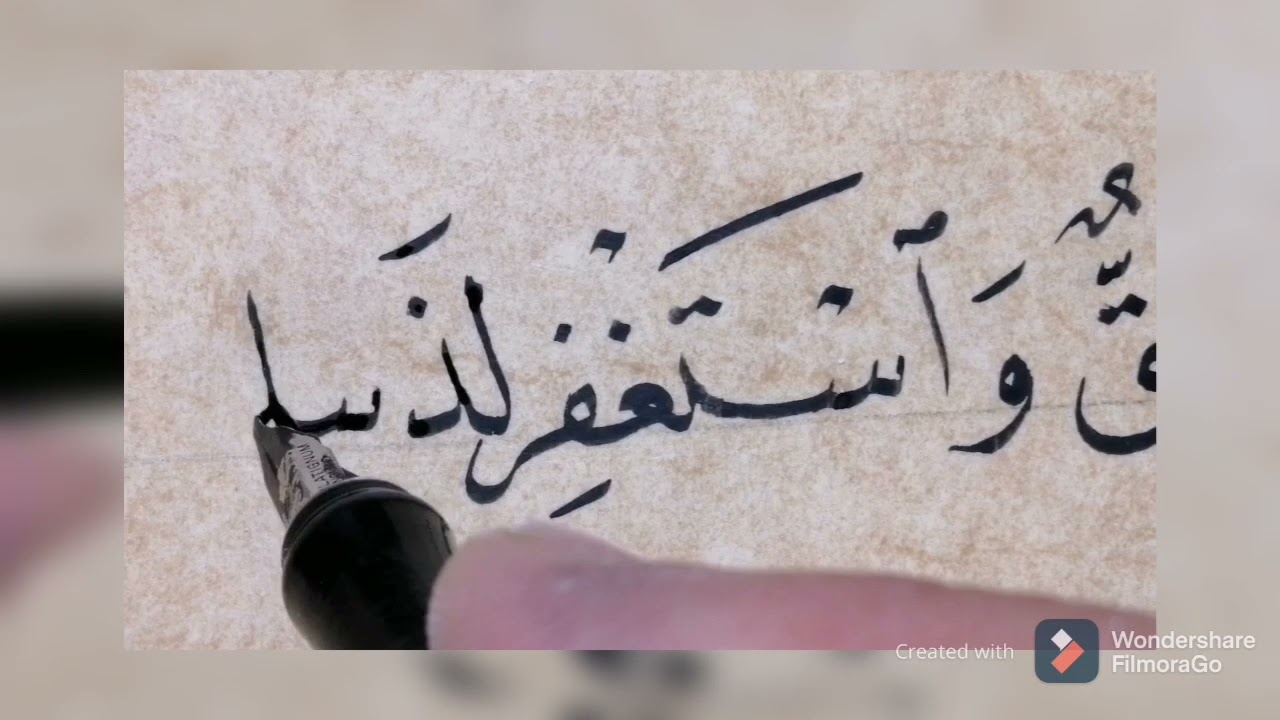 قٌّ وَٱسْتَغْفِر
Created with
Wondershare
FilmoraGo